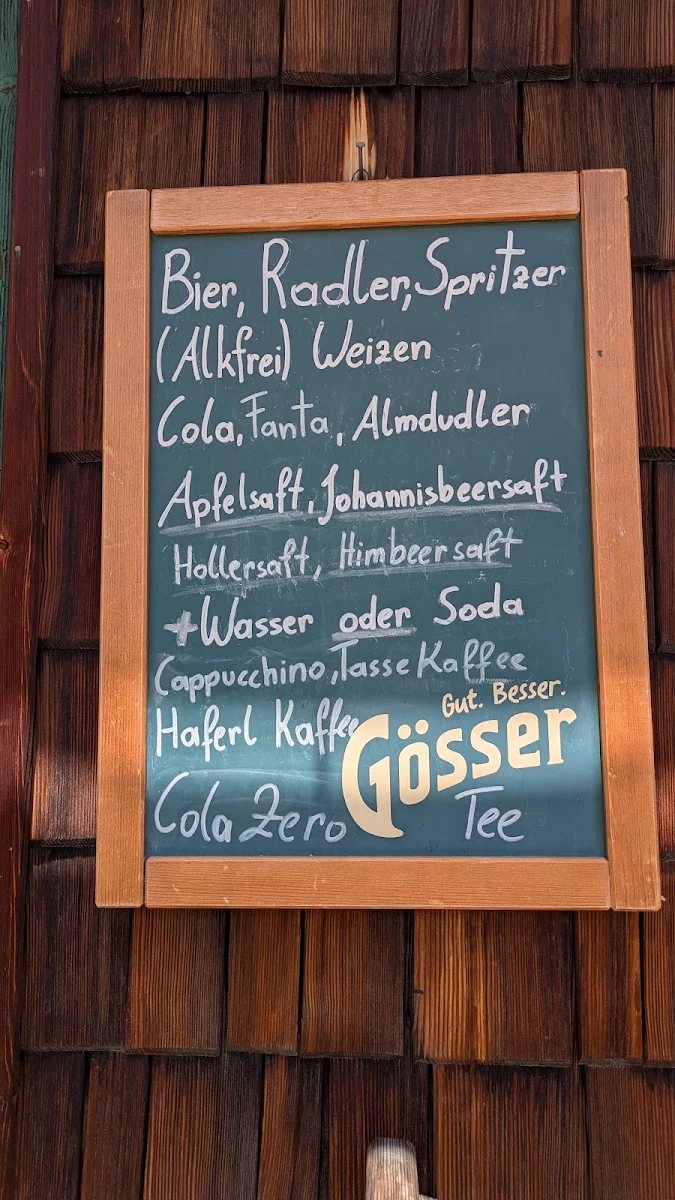 Bier, Radler, Spritzer
(Alkfrei) Weizen
Cola, Fanta, Almdudler
Apfelsaft, Johannisbeersaft
Hollersaft, Himbeersaft
+Wasser oder Soda
Cappucchino, Tasse Kaffee
Haferl Kaffee
Gut. Besser.
Gösser
Cola Zero
Tee